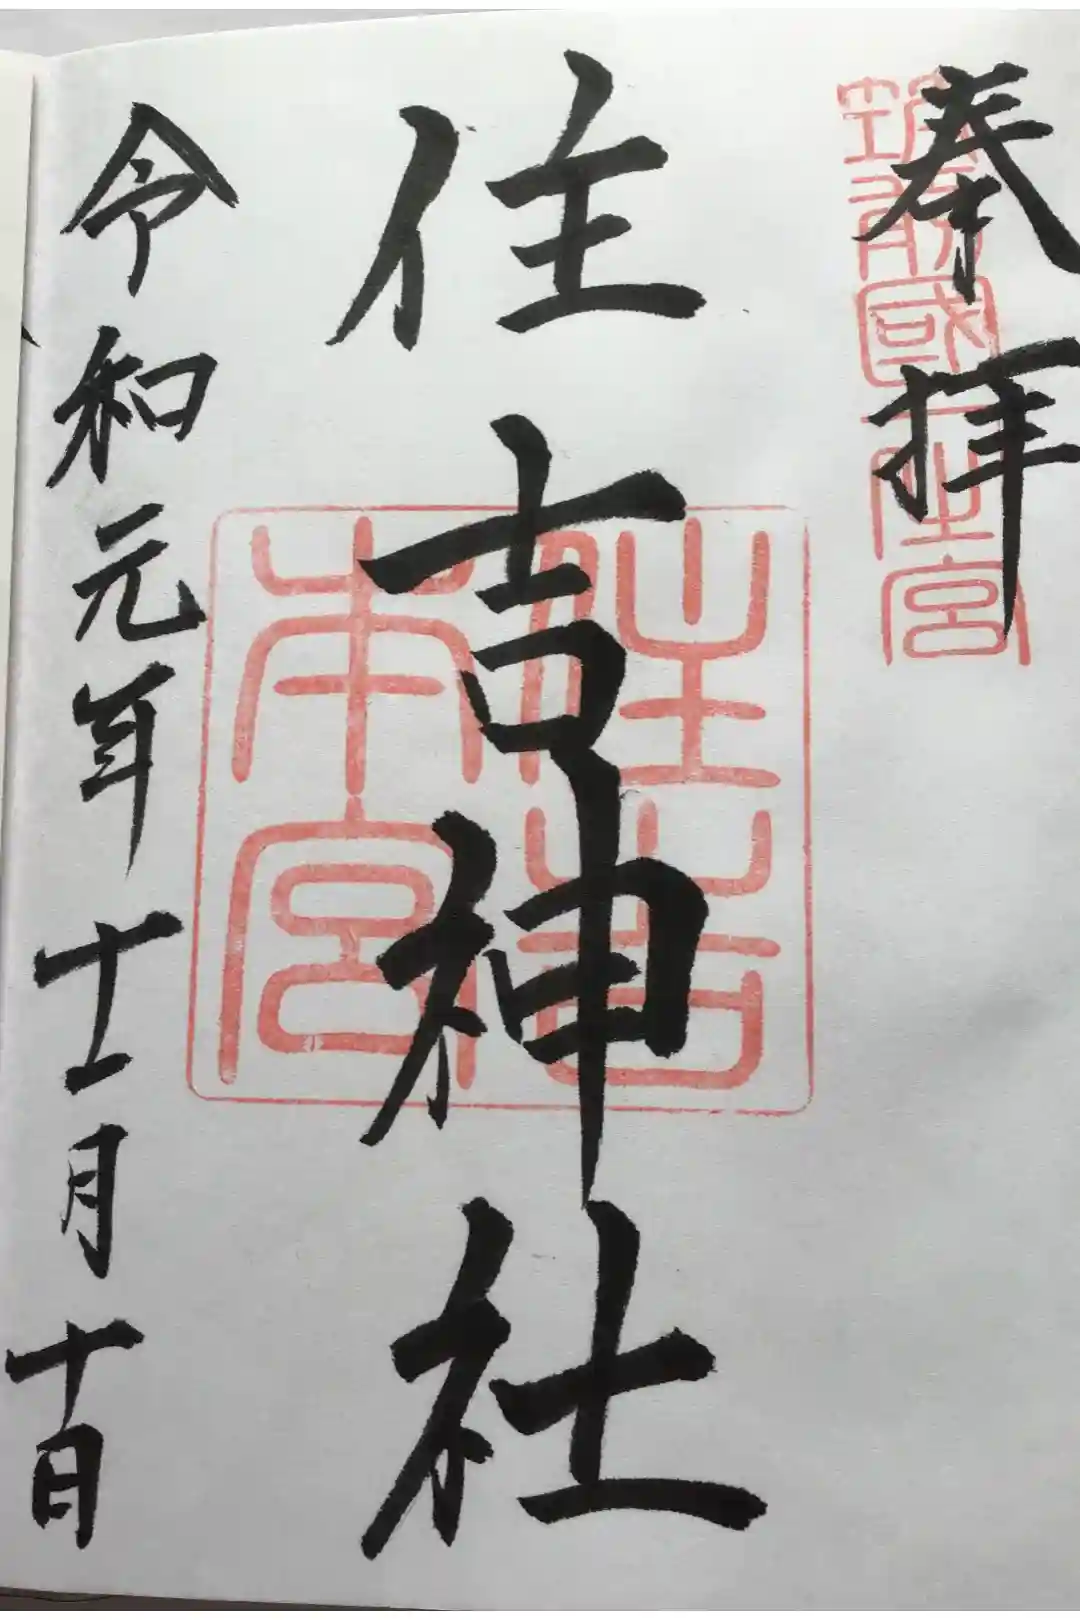 奉拝
筑前國一之宮
住吉神社
住吉本宮
令和元年十一月十日